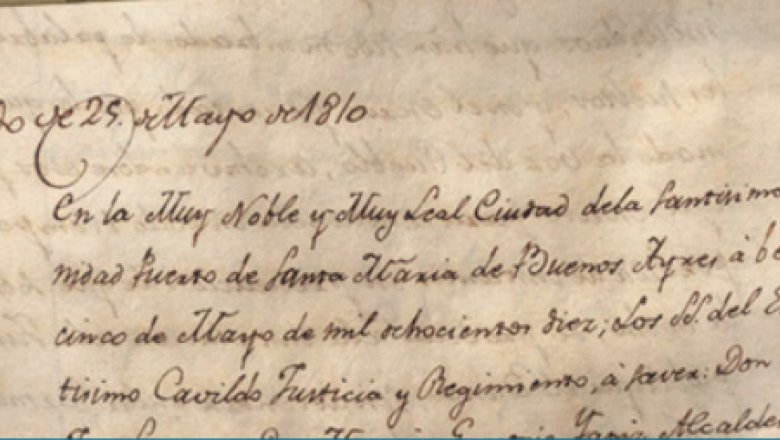 de 25. de Mayo de 1810
En la Muy Noble y Muy Leal Ciudad dela Santisima
nidad Puerto de Santa Maria de Buenos Ayres à
cinco de Mayo de mil ochocientos diez; Los SS. del
tisimo Cavildo Justicia y Regimiento, à saver: Don
Alcalde